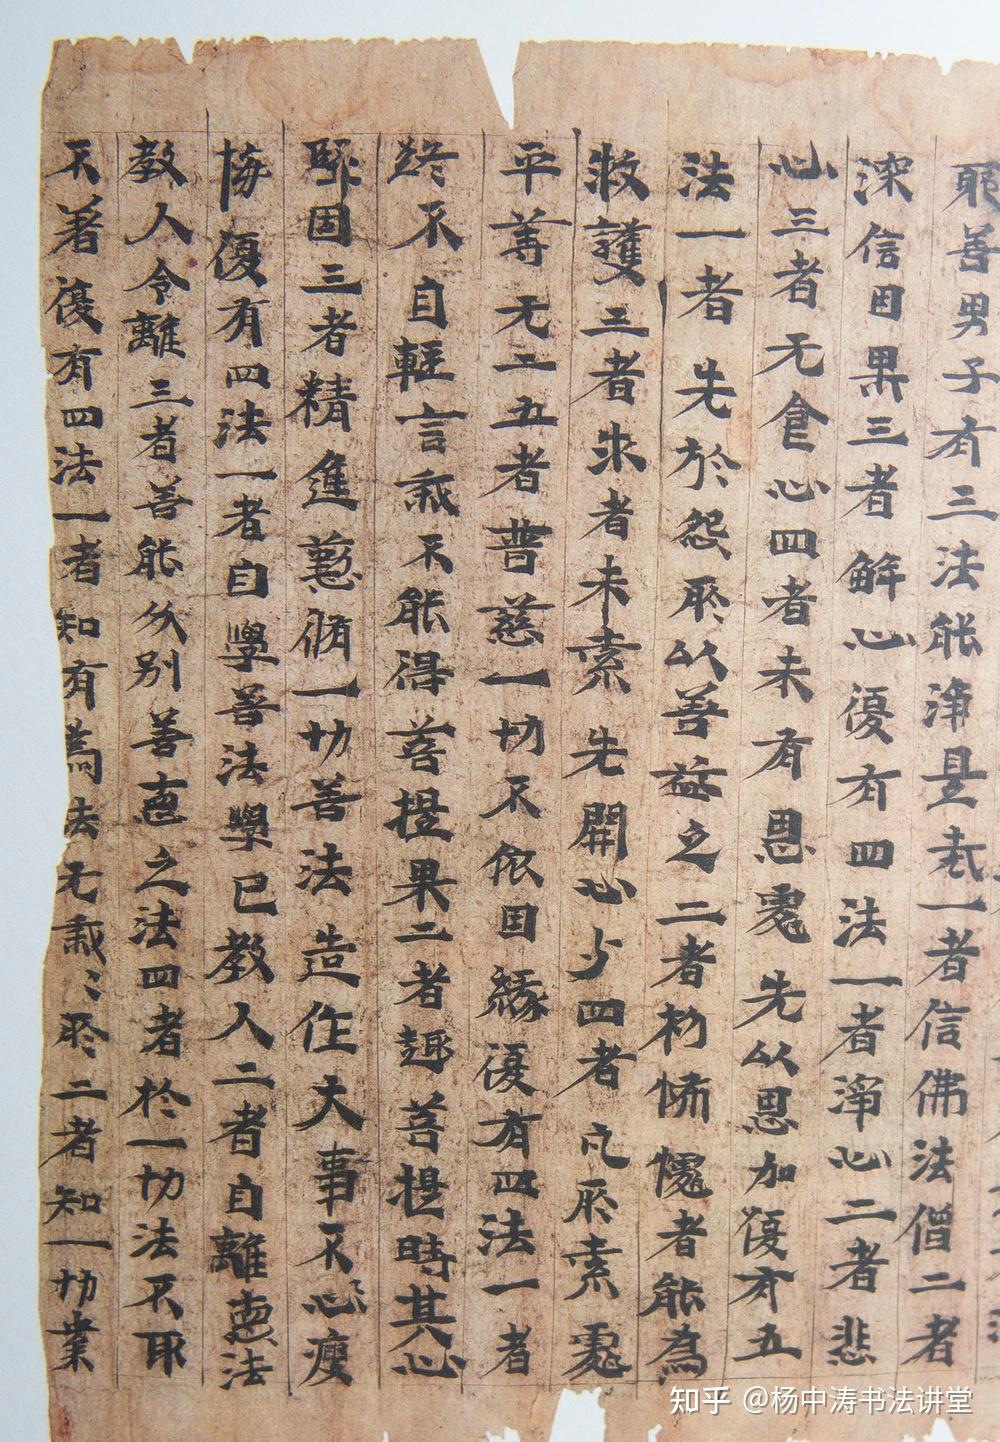 聚善男子有三法能淨是𠅤一者信佛法僧二者
深信因果三者解心復有四法一者淨心二者悲
心三者无食心四者未有恩處先以恩加復有五
法一者先於怨所以善益之二者 怖懅者能為
救護三者求者未索先開心与四者凡所索處
平等无二五者普慈一切不依因緣復有四法一者
終不自輕言我不能得菩提果二者趣菩提時其心
堅固三者精進懃脩一切善法四造作大事不心疲
悔復有四法一者自學善法學已教人二者自離惡法
教人令離三者善能分別善惡之法四者於一切法不取
不著復有四法一者知有為法无我々所二者知一切業
知乎 @杨中涛书法讲堂